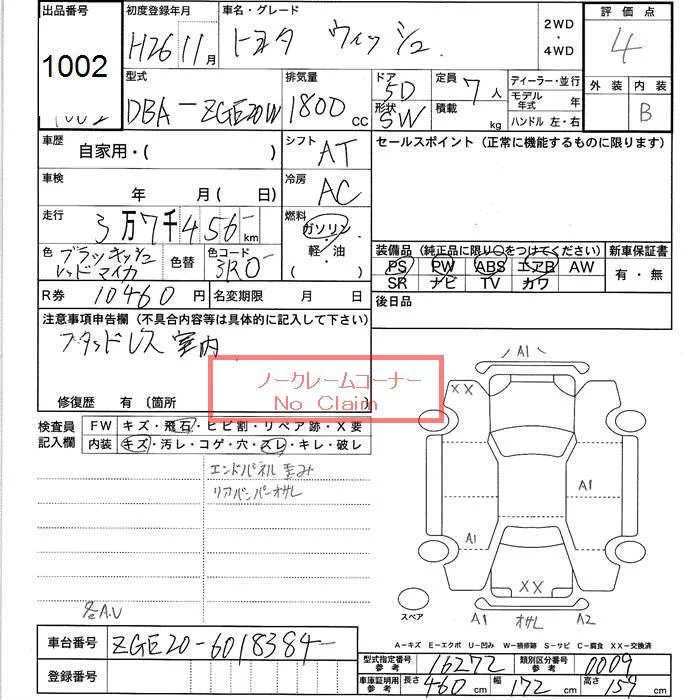 出品番号 1002
初度登録年月 H26 11月
車名・グレード トヨタ ウィッシュ
2WD・4WD
評価点 4
外装 内装 B
型式 DBA-ZGE20W
排気量 1800 cc
ドア 形状 5D SW
定員 7人
積載 kg
ディーラー・並行
モデル年式 年
ハンドル 左・右
車歴 自家用・( )
シフト AT
セールスポイント (正常に機能するものに限ります)
車検 年 月 ( 日)
冷房 AC
走行 3万7千456 km
燃料 ガソリン・軽・油 ( )
色 ブラッキッシュレッドマイカ
色替
色コード 3R0
装備品 (純正品に限り○をつけてください)
PS PW ABS エアB AW
SR ナビ TV カワ
新車保証書 有・無
R券 10460円
名変期限 月 日
後日品
注意事項申告欄 (不具合内容等は具体的に記入して下さい)
スタッドレス室内
ノークレームコーナー
No Claim
修復歴 有 (箇所
検査員記入欄
FW キズ・飛石・ヒビ割・リペア跡・X要
内装 キズ・汚レ・コゲ・穴・スレ・キレ・破レ
エンドパネル歪み
リアバンパーオサレ
A1
XX
A1
A1
XX
A1 オサレ A2
スペア
A-キズ E-エクボ U-凹み W-補修跡 S-サビ C-腐食 XX-交換済
車台番号 ZGE20-6018384
登録番号
型式指定番号参考 16272
類別区分番号参考 0009
車庫証明用参考 長さ 460 cm 幅 172 cm 高さ 159 cm